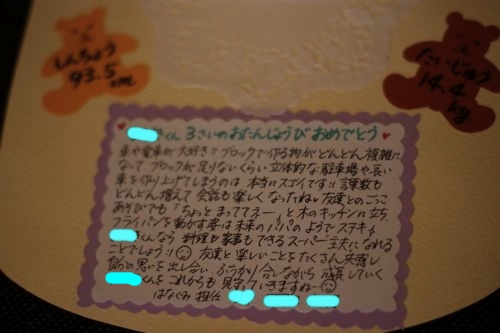 しんちょう
93.5
cm
たいじゅう
14.4
kg
くん 3さいのおたんじょうび おめでとう
車や電車が大好き!! ブロックで作る物がどんどん複雑に
なって ブロックが足りないくらい 立体的な駐車場や長い
車を作り上げてしまうのは 本当にスゴイです!! 言葉数も
どんどん増えて 会話も楽しくなったね。友達とのごっこ
あそびでも「ちょっとまっててネー」と木のキッチンに立ち、
フライパンを動かす姿は未来のパパのようでステキ
くんなら 料理も家事もできるスーパー主夫になれる
ことでしょう!! 友達と楽しいことをたくさん共感し
思いを出し合い、ぶつかり合いながら 成長していく
くんをこれからも 見守っていきますね
はなぐみ 担任